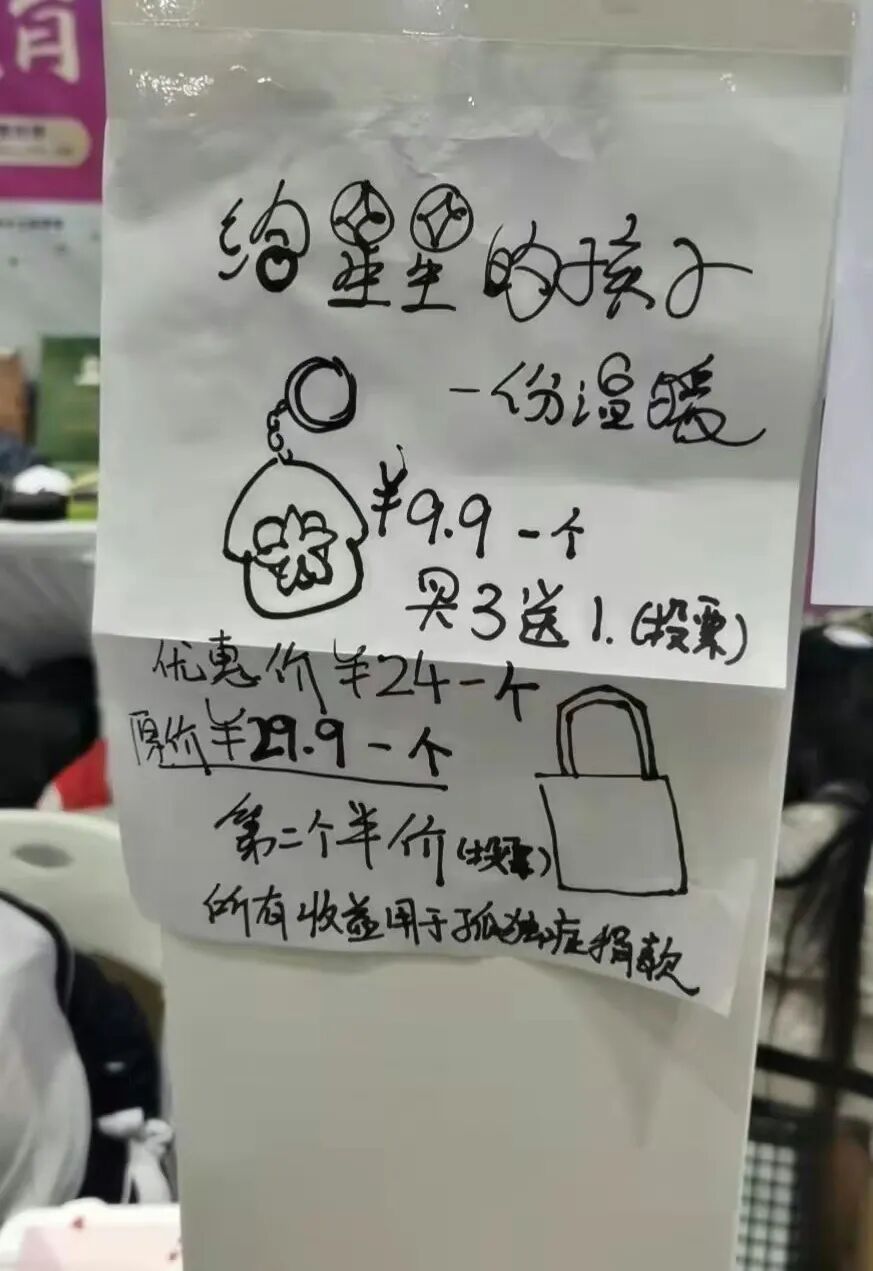 育
给星星的孩子
一份温暖
¥9.9一个
买3送1.(投票)
优惠价¥24一个
原价¥29.9一个
第二个半价(投票)
所有收益用于孤独症捐款